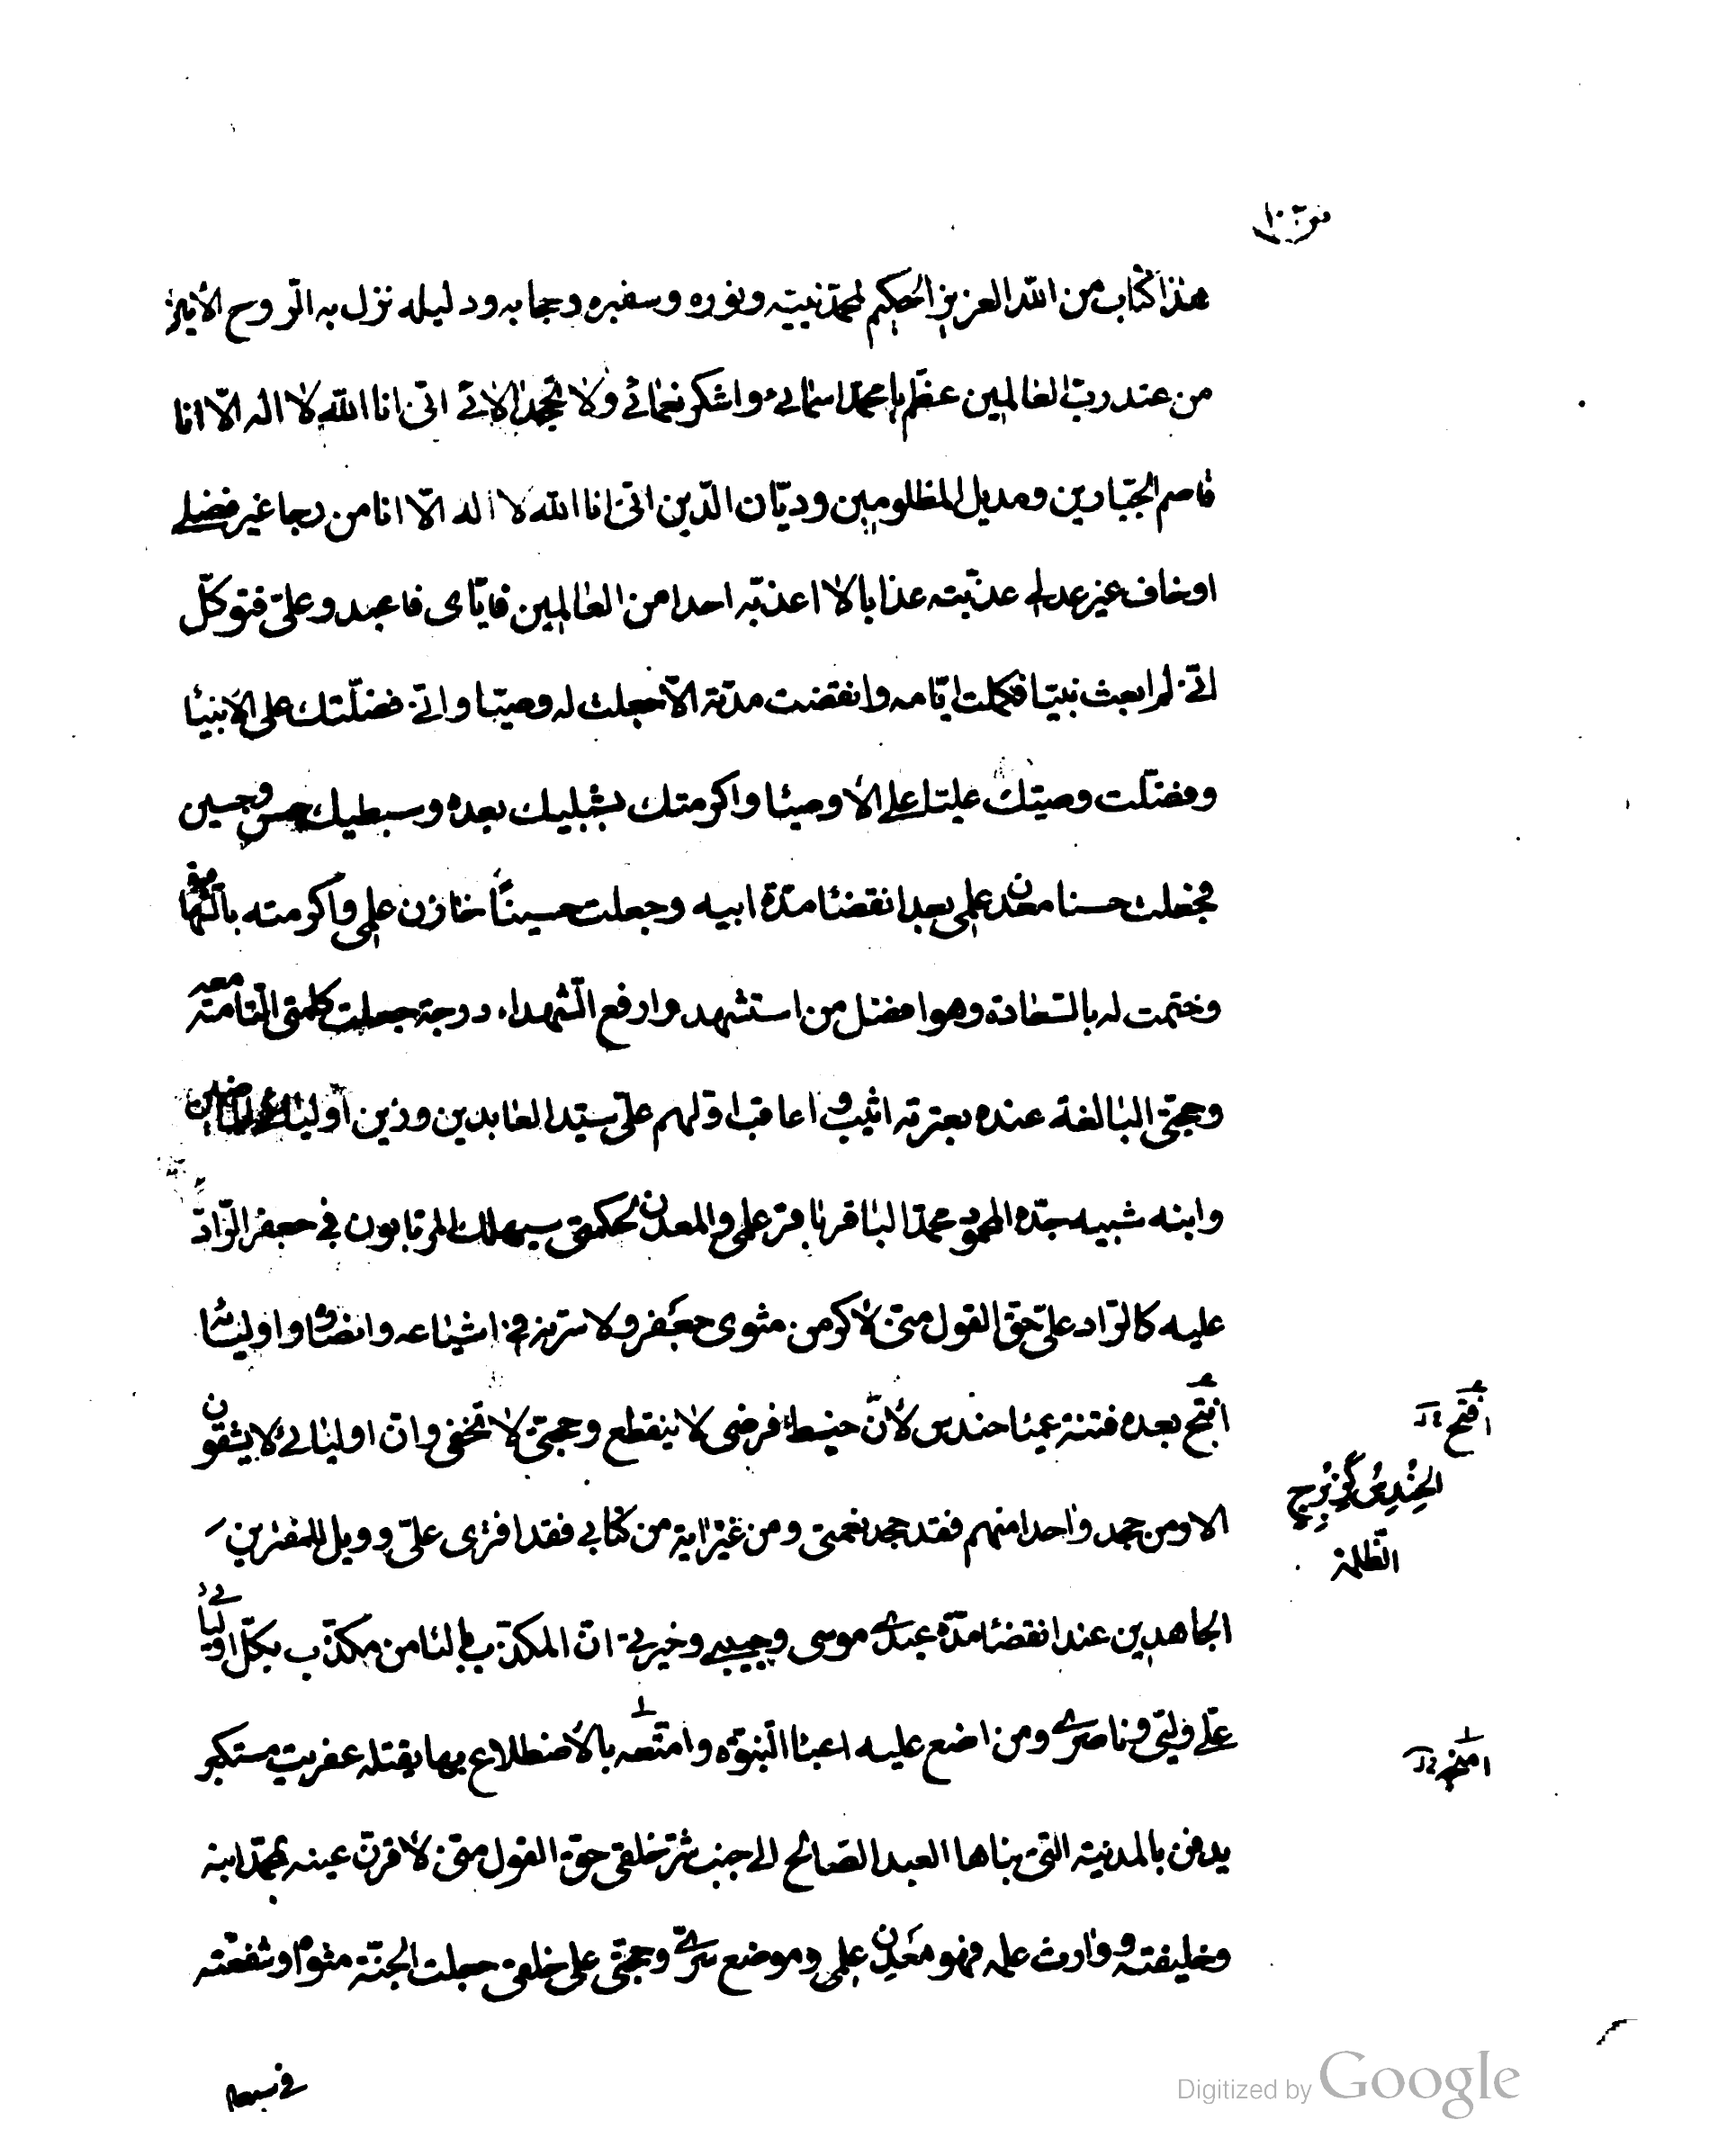 هذا كتاب من الله العزيز الحكيم لمحمد نبيّه ونوره وسفيره وحجابه ودليله نزل به الرّوح الأمين
من عند ربّ العالمين عظّم يا محمّد اسمائي واشكر نعمائي ولا تجحد الآئي انّي انا الله لا اله الّا انا
قاصم الجبّارين ومديل المظلومين وديّان الدّين انّي انا الله لا اله الّا انا من رجا غير فضلي
او خاف غير عدلي عذّبته عذابا لا اعذّبه احدا من العالمين فايّاى فاعبد وعلىّ فتوكّل
انّي لم ابعث نبيّا فكملت ايّامه وانقضت مدّته الّا جعلت له وصيّا وانّي فضّلتك على الأنبيا
وفضّلت وصيّك عليّا على الأوصيا واكرمتك بشبليك بعده وسبطيك حسن وحسين
فجعلت حسنا معدن علمي بعد انقضا مدّة ابيه وجعلت حسيناً خازن علمي واكرمته بالشهادة
وختمت له بالسّعادة وهو افضل من استشهد وارفع الشّهداء درجة جعلت كلمتي التّامّة معه
وحجّتي البالغة عنده بعترته اثيب واعاقب اوّلهم علىّ سيّد العابدين وزين اوليائي الماضين
وابنه شبيه جدّه المحمود محمّد الباقر باقر علمي والمعدن لحكمتي سيهلك المرتابون في جعفر الرّادّ
عليه كالرّاد علىّ حقّ القول منّي لأكرمن مثوى جعفر ولاسرّنه في اشياعه وانصاره واوليائه
انتج بعده فتنة عميا حندس لأنّ خيط فرضى لا ينقطع وحجّتي لا تخفى وانّ اوليائي لا يشقون
الا ومن جحد واحدا منهم فقد جحد نعمتي ومن غيّر اية من كتابي فقد افترى علىّ وويل للمفترين
الجاهدين عند انقضا مدّة عبدي موسى وحبيبي وخيرتي انّ المكذّب بالثامن مكذّب بكلّ اوليائي
علي وليّي وناصري ومن اضع عليه اعبا النّبوّة وامتّعه بالأضطلاع بها يقتله عفريت مستكبر
يدفن بالمدينة التي بناها العبد الصّالح الى جنب شرّ خلقي حقّ القول منّي لأقرنّ عينه بمحمّد ابنه
وخليفته ووارث علمه فهو معدن علمي وموضع سرّي وحجّتي على خلقي جعلت الجنّة مثواه وشفّعته
افتح
الحندس كزبرج
الظّلمة
امتحنه
في سبعين
Digitized by Google